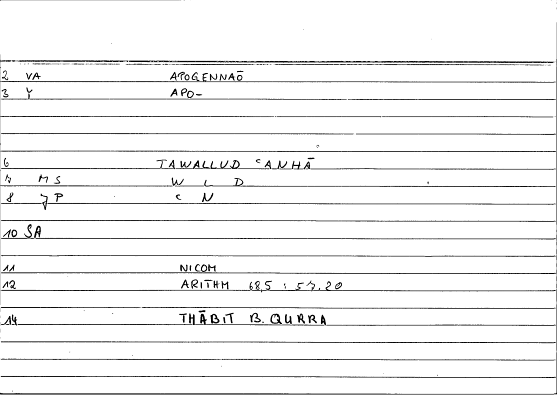 2 VA APOGENNAŌ
3 Y APO-
6 TAWALLUD ʿANHĀ
7 MS W L D
8 JP ʿ N
10 SA
11 NICOM
12 ARITHM 68,5 : 57.20
14 THĀBIT B. QURRA